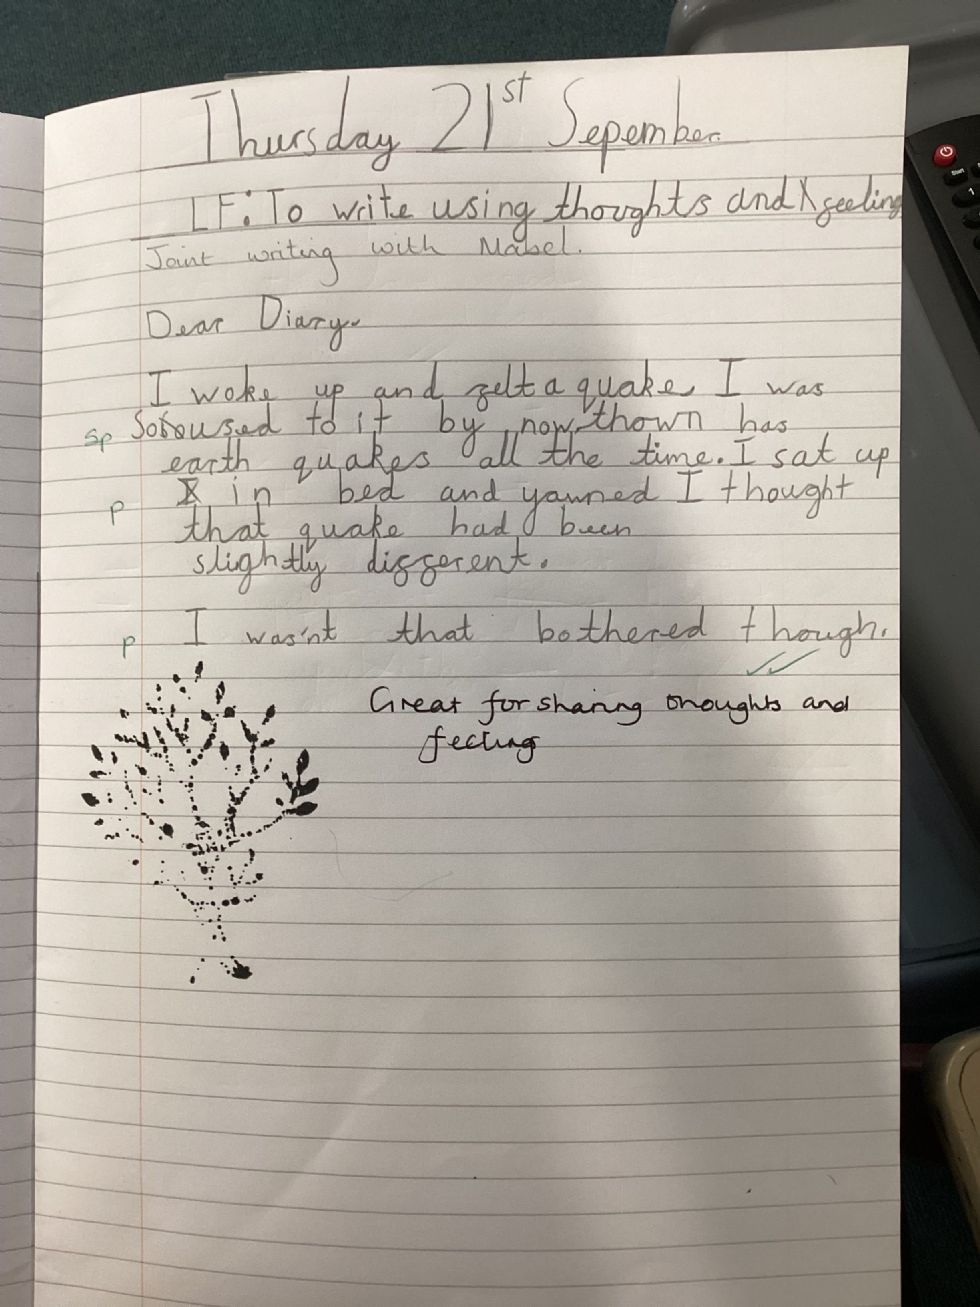 Thursday 21st Sepember.
LF: To write using thoughts and feeling
Joint writing with Mabel.
Dear Diary.
I woke up and felt a quake. I was
sp used to it by now, thown has
earth quakes all the time. I sat up
p in bed and yawned I thought
that quake had been
slightly different.
p I was'nt that bothered though.
Great for sharing thoughts and
feeling
Start
1